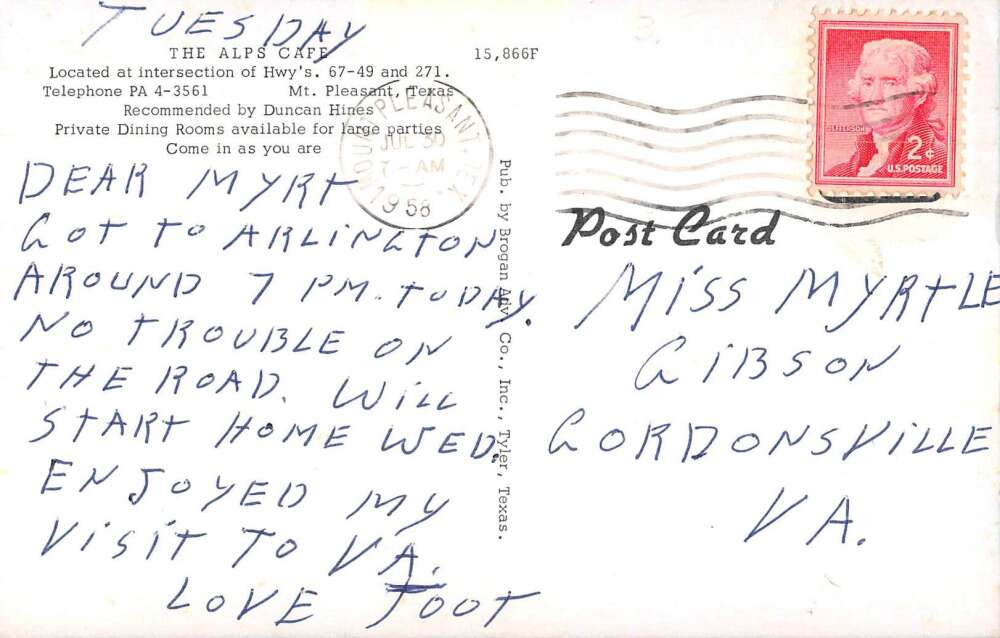 TUESDAY
THE ALPS CAFE
15,866F
Located at intersection of Hwy's. 67-49 and 271.
Telephone PA 4-3561 Mt. Pleasant, Texas
Recommended by Duncan Hines
Private Dining Rooms available for large parties
Come in as you are
MOUNT PLEASANT, TEX.
JUL 30
7 - AM
1958
JEFFERSON
2¢
U.S. POSTAGE
Post Card
DEAR MYRT
GOT TO ARLINGTON
AROUND 7 PM. TODAY.
NO TROUBLE ON
THE ROAD. WILL
START HOME WED.
ENJOYED MY
VISIT TO VA.
LOVE TOOT
Pub. by Brogan Adv. Co., Inc., Tyler, Texas.
MISS MYRTLE
GIBSON
GORDONSVILLE
VA.